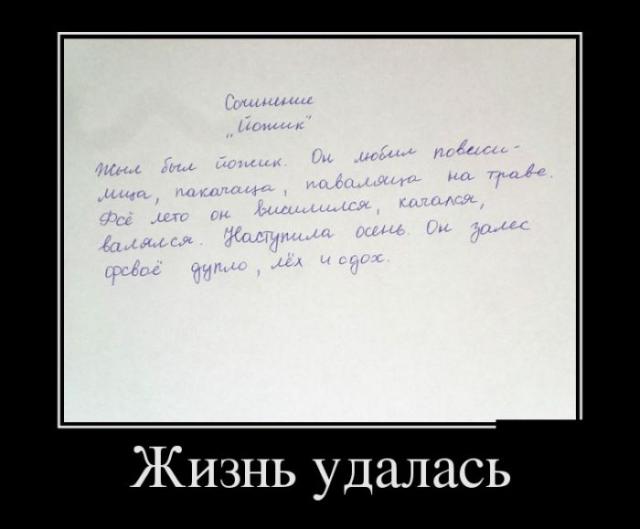 Сочинение
„Йожик"
Жыл был йожик. Он любил повиси-
лица, пакачаца, паваляца на траве.
Фсё лето он висилился, качался,
валялся. Наступила осень. Он залес
фсвоё дупло, лёх и сдох.
Жизнь удалась